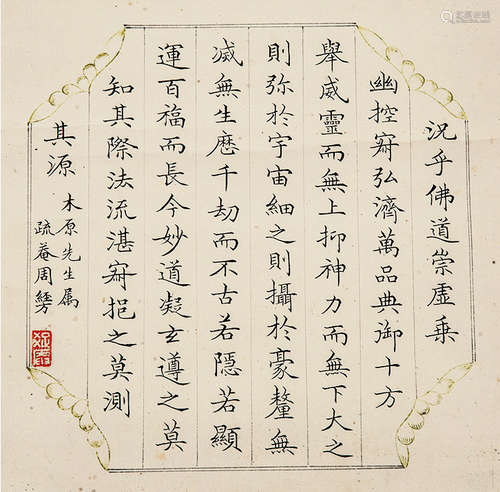 況乎佛道崇虛乘
幽控寂弘濟萬品典御十方
舉威靈而無上抑神力而無下大之
則弥於宇宙細之則攝於豪釐無
滅無生歷千劫而不古若隱若顯
運百福而長今妙道凝玄遵之莫
知其際法流湛寂挹之莫測
其源
木原先生属
疏菴周經方